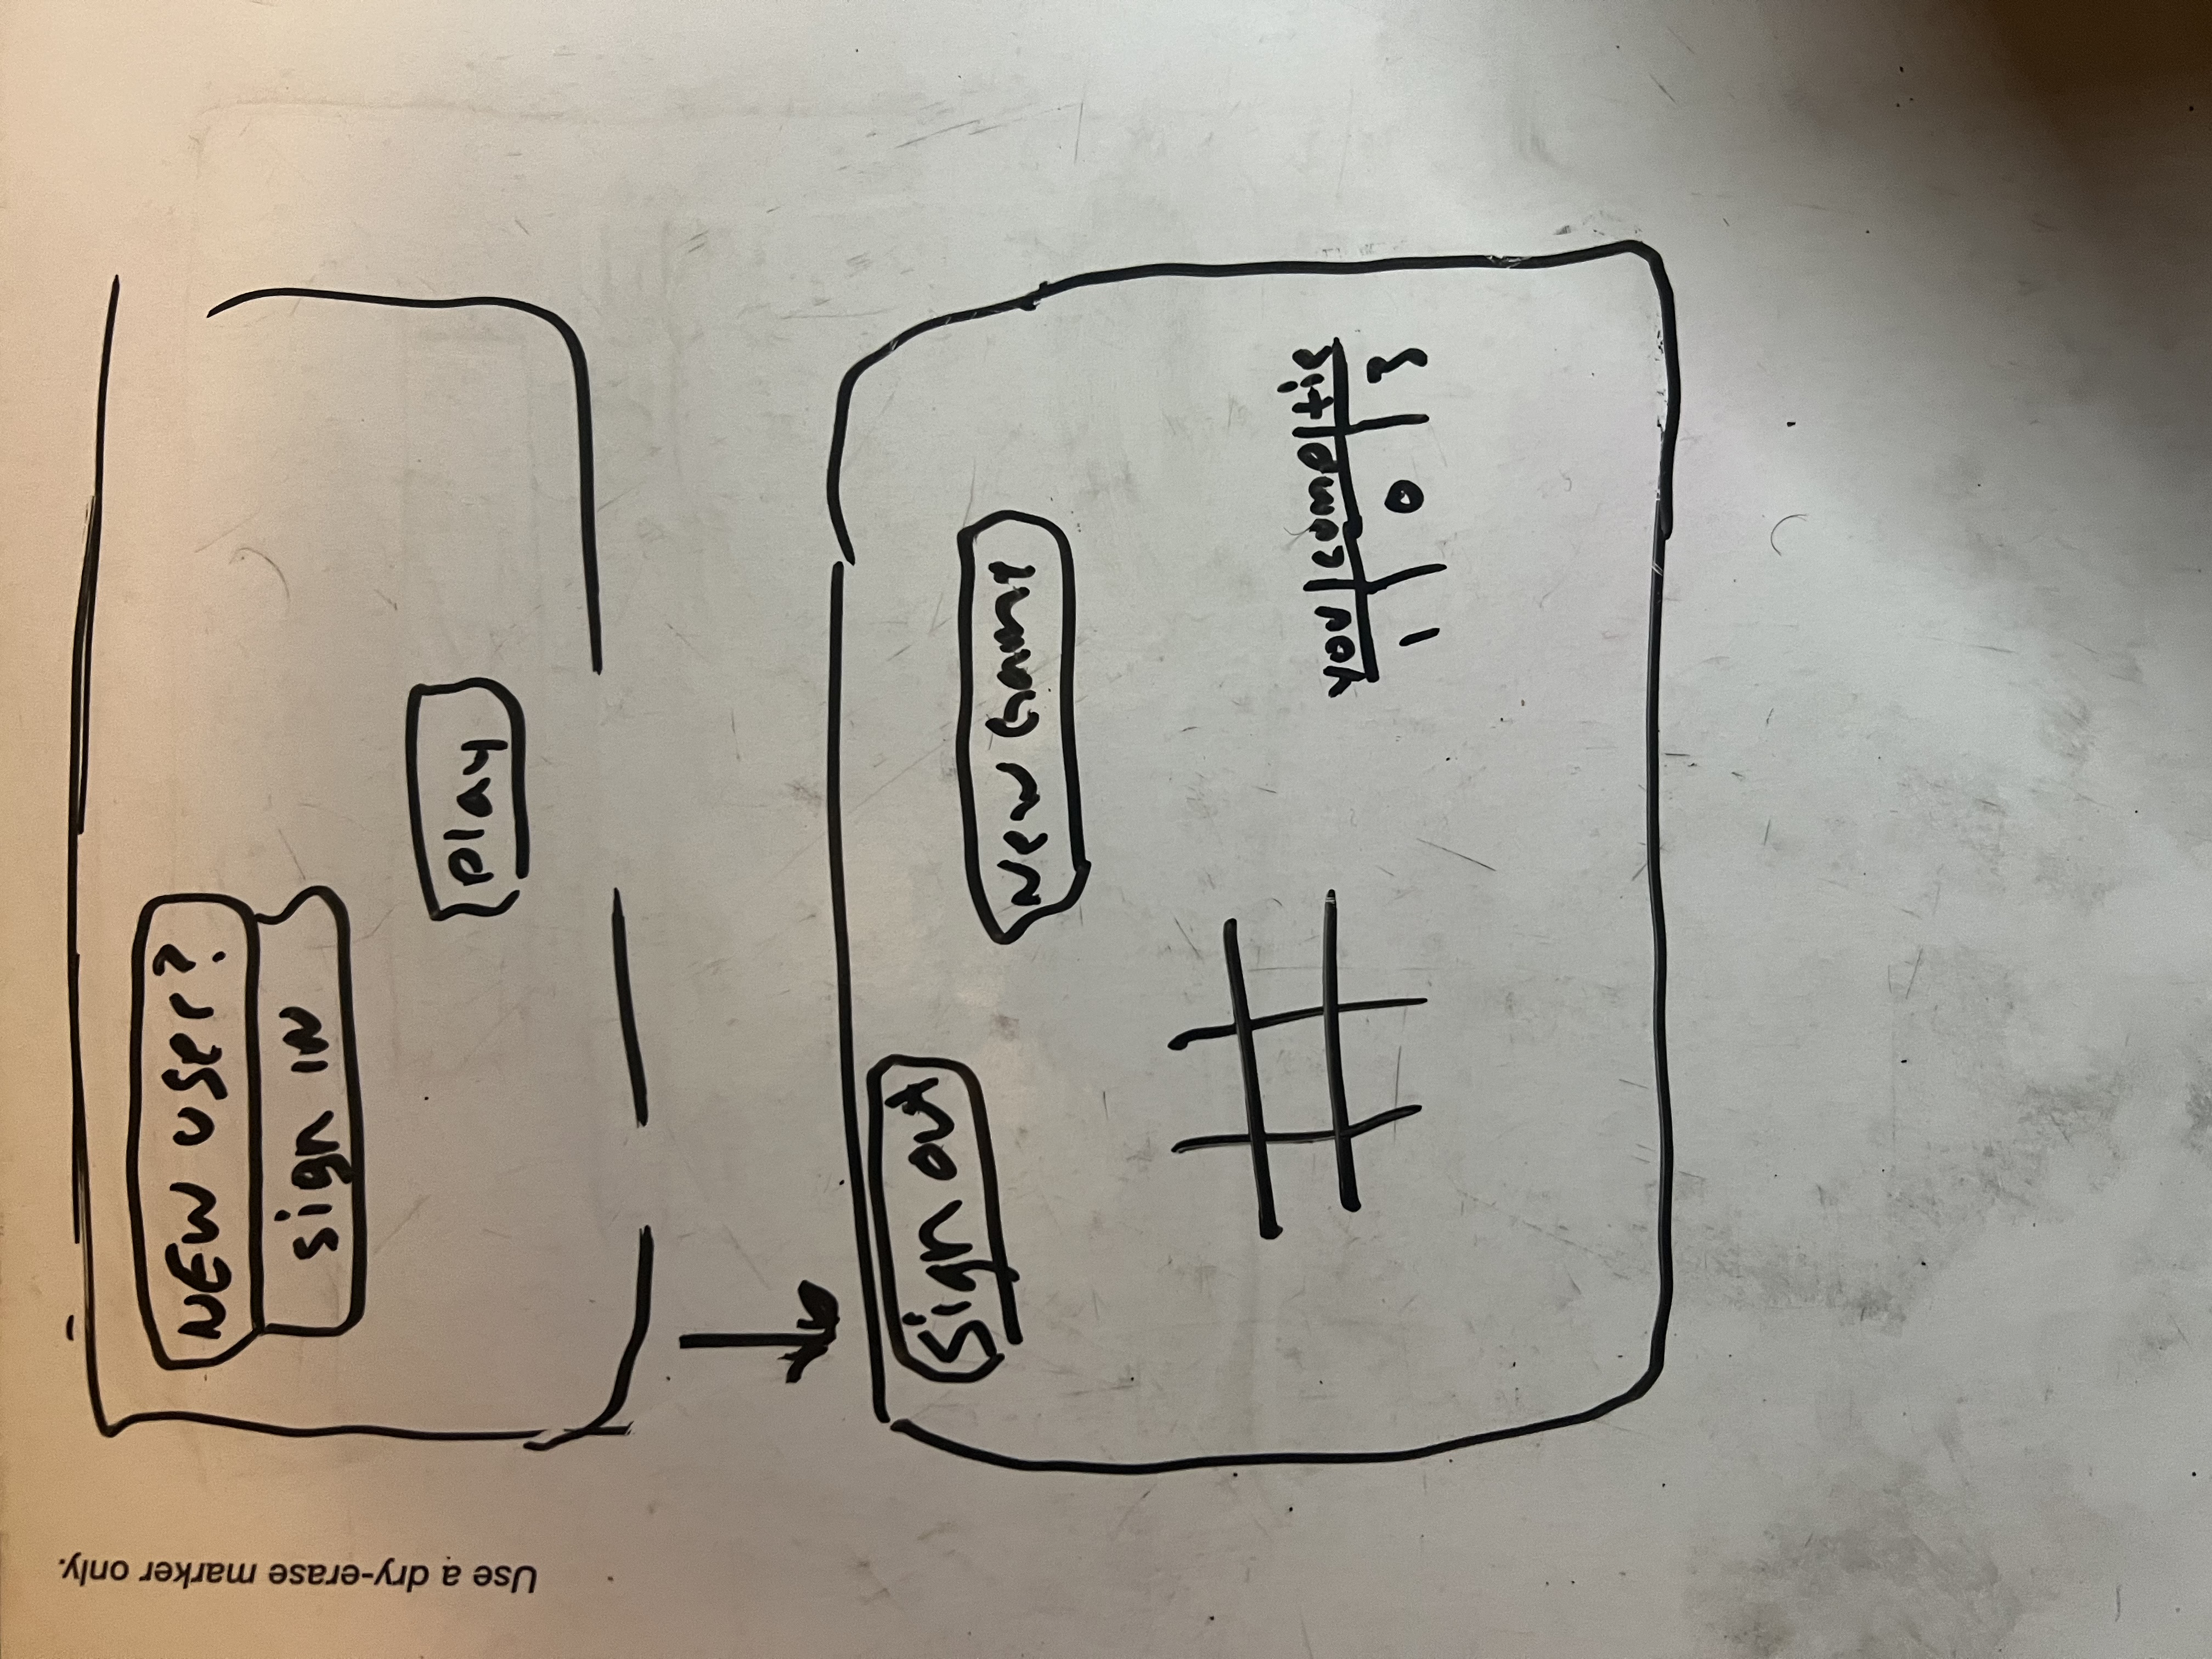 Use a dry-erase marker only.
NEW user?
sign IN
play
Sign out
New Game
you comp tie
1 0 3